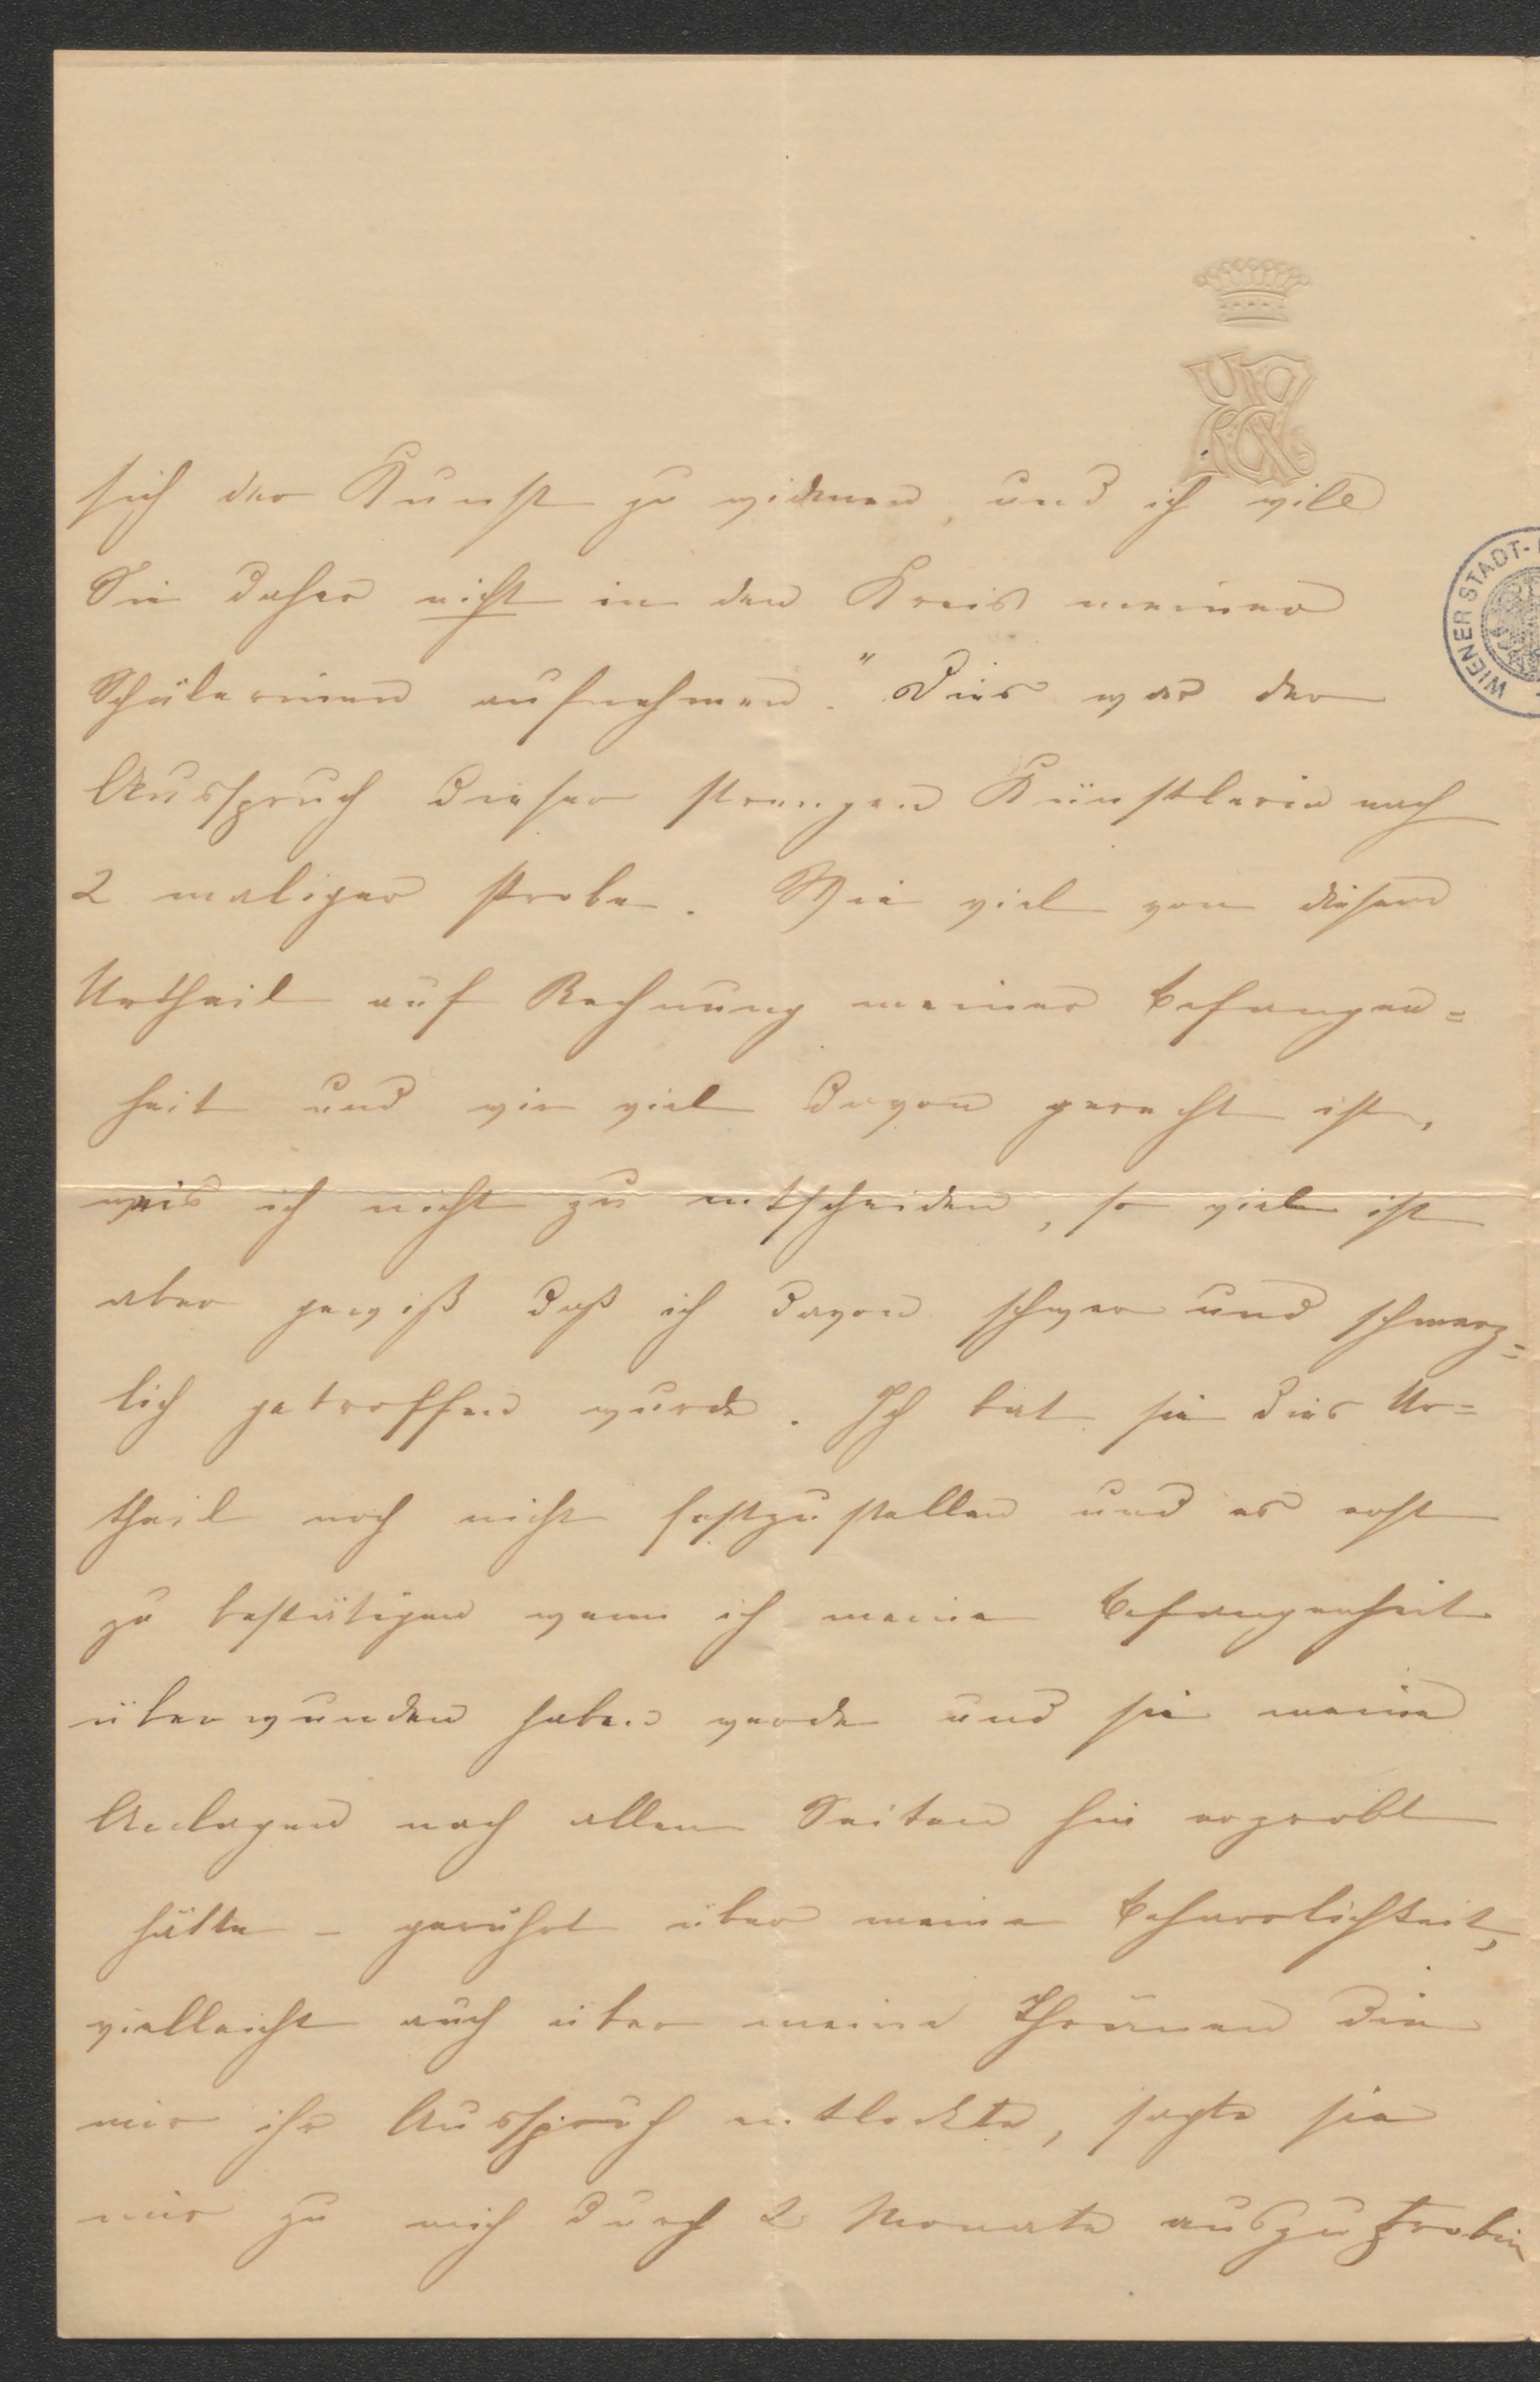 sich der Kunst zu widmen, und ich will
Sie daher nicht in den Kreis meiner
Schülerinnen aufnehmen." Dies war der
Ausspruch dieser strengen Künstlerin nach
2 maliger Probe. Wie viel von diesem
Urtheil auf Rechnung meiner Befangen=
heit und wie viel davon gerecht ist,
weis ich nicht zu entscheiden, so viel ist
aber gewiß daß ich davon schwer und schmerz=
lich getroffen wurde. Ich bat sie dies Ur=
theil noch nicht festzustellen und es erst
zu bestätigen wenn ich meine Befangenheit
überwunden haben werde und sie meine
Anlagen nach allen Seiten hin erprobt
hätte – gerührt über meine Beharrlichkeit,
vielleicht auch über meine Thränen die
mir ihr Ausspruch entlockte, sagte sie
mir zu mich durch 2 Monate auszuproben
WIENER STADT-